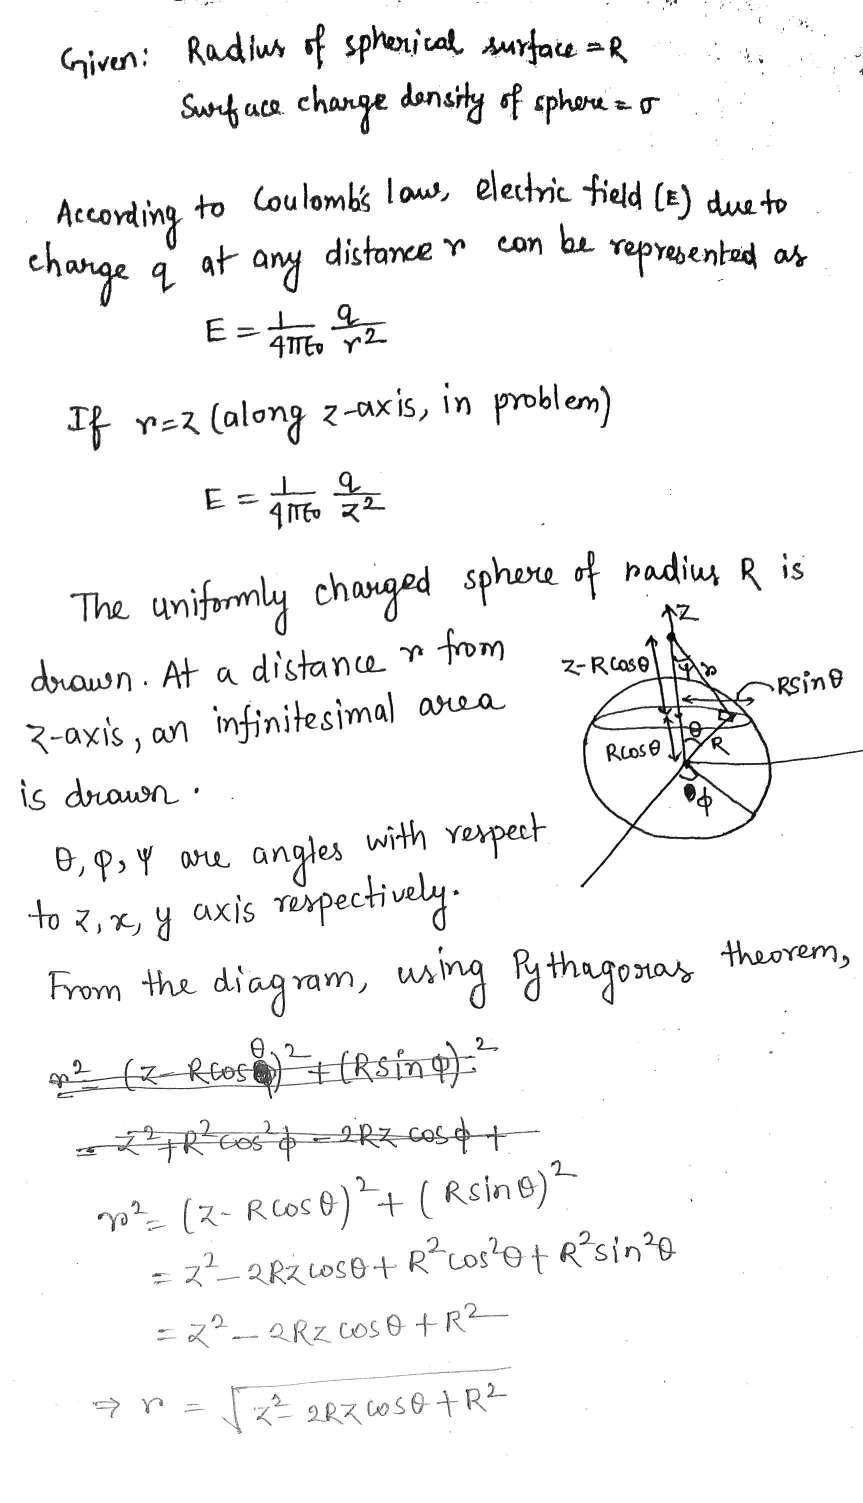 Given: Radius of spherical surface = R
Surface charge density of sphere = σ
According to Coulomb's law, electric field (E) due to
charge q at any distance r can be represented as
E = 1/4πϵ₀ q/r²
If r=z (along z-axis, in problem)
E = 1/4πϵ₀ q/z²
The uniformly charged sphere of radius R is
drawn. At a distance r from
z-axis, an infinitesimal area
is drawn.
Z
z-Rcosθ
ψ
r
Rsinθ
θ
R
Rcosθ
ϕ
θ, φ, ψ are angles with respect
to z, x, y axis respectively.
From the diagram, using Pythagoras theorem,
r² = (z - Rcosθ)² + (Rsinφ)²
= z² + R²cos²ϕ - 2Rz cosϕ +
r² = (z - Rcosθ)² + (Rsinθ)²
= z² - 2Rzcosθ + R²cos²θ + R²sin²θ
= z² - 2Rz cosθ + R²
⇒ r = √z² - 2Rzcosθ + R²